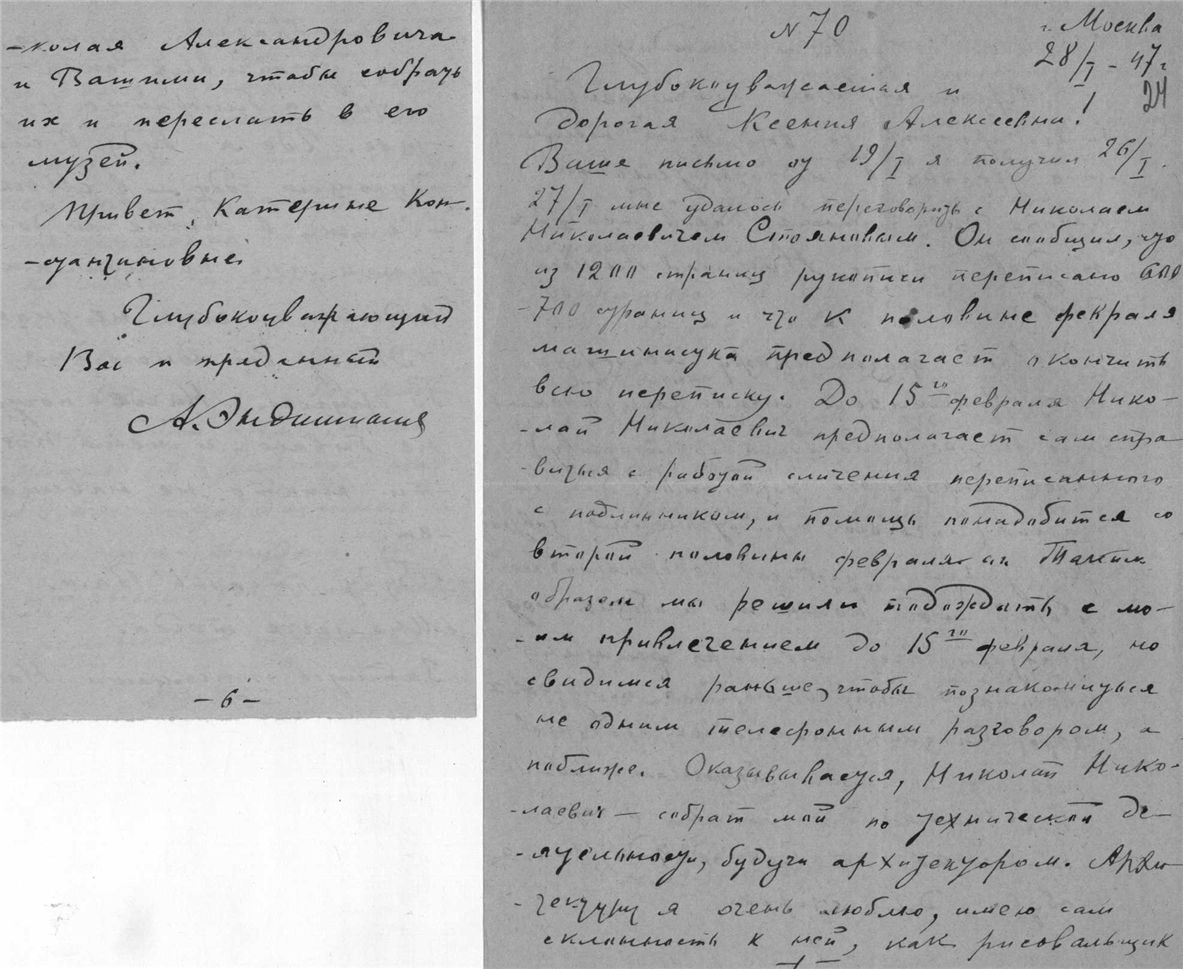 -колая Александровича
и Вашими, чтобы собрать
их и переслать в его
музей.
Привет Катерине Кон-
-стантиновне
Глубокоуважающий
Вас и преданный
- 6 -
N 70
г. Москва
28/I - 47 г
24
Глубокоуважаемая и
дорогая Ксения Алексеевна!
Ваше письмо от 19/I я получил 26/I.
27/I мне удалось переговорить с Николаем
Николаевичем Стояновым. Он сообщил, что
из 1200 страниц рукописи переписано 600
-700 страниц и что к половине февраля
машинистка предполагает окончить
всю переписку. До 15го февраля Нико-
-лай Николаевич предполагает сам спра-
-виться с работой сличения переписанного
с подлинником, и помощь понадобится со
второй половины февраля. Таким
образом мы решили подождать с мо-
-им привлечением до 15го февраля, но
свидимся раньше, чтобы познакомиться
не одним телефонным разговором, а
поближе. Оказывается, Николай Нико-
-лаевич — собрат мой по технической де-
-ятельности, будучи архитектором. Архи-
-тектуру я очень люблю, имею сам
склонность к ней, как рисовальщик
- 1 -